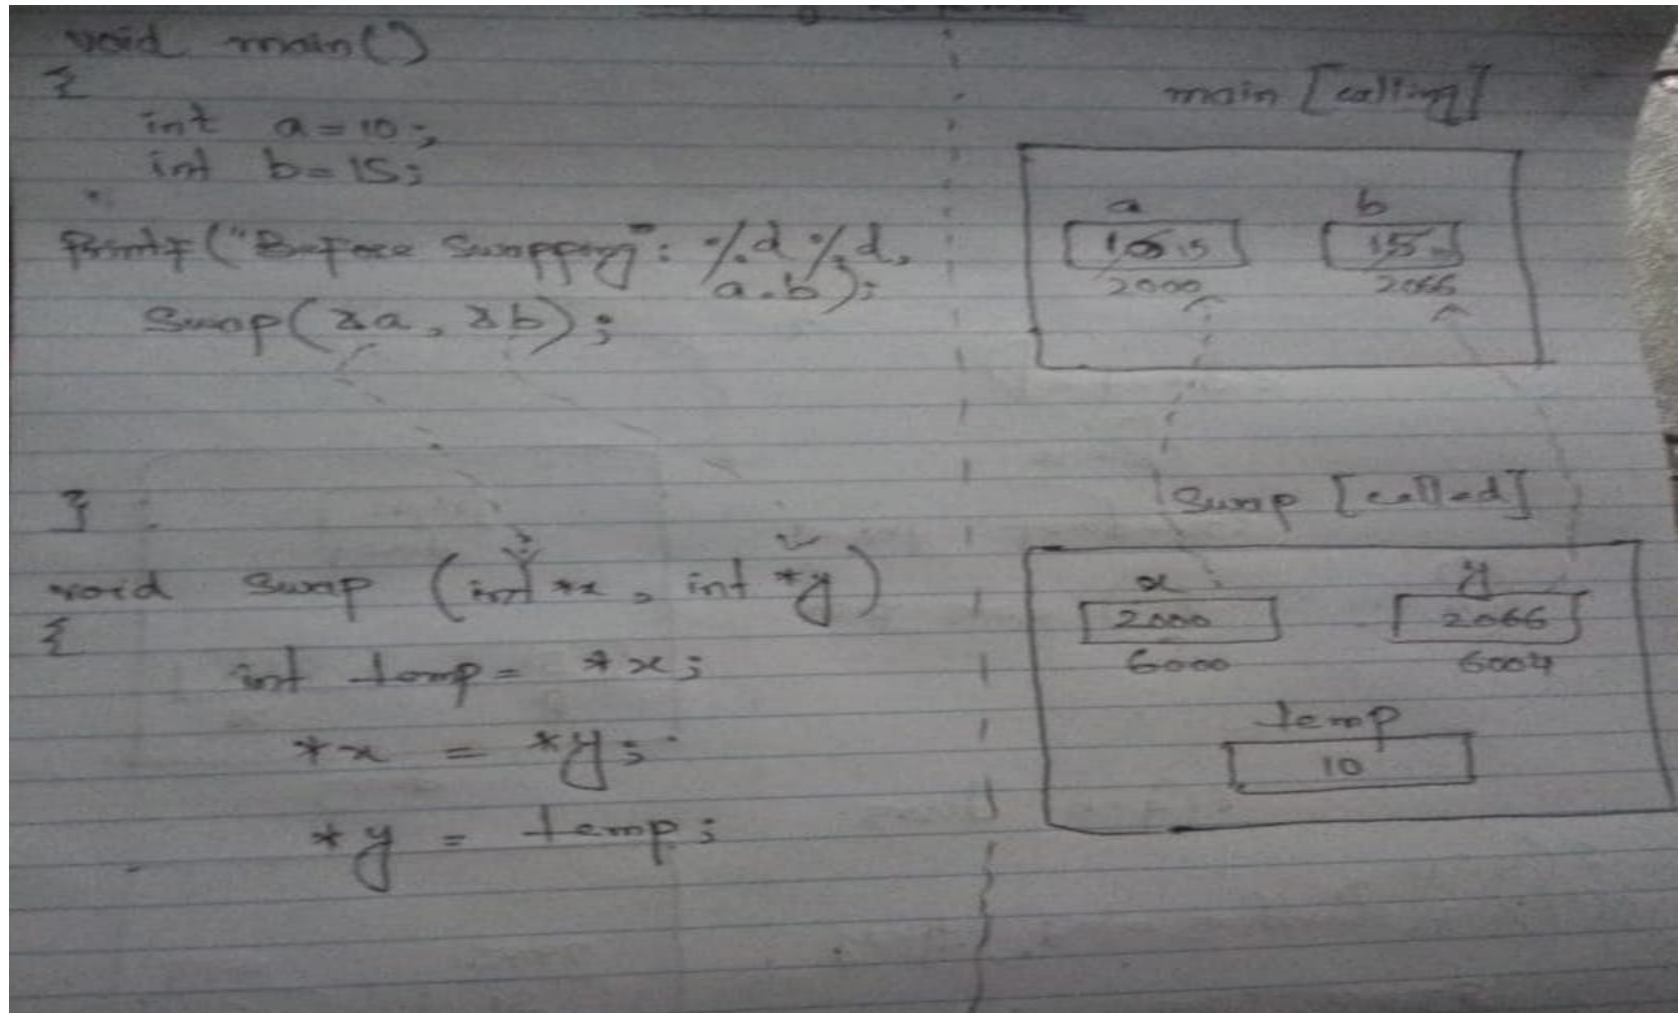 void main()
{
int a=10;
int b=15;
printf("Before Swapping": %d %d,
a.b);
Swap(&a, &b);
}
void Swap (int *x, int *y)
{
int temp= *x;
*x = *y;
*y = temp;
main [calling]
a b
10 15 15
2000 2066
Swap [called]
x y
2000 2066
6000 6004
temp
10